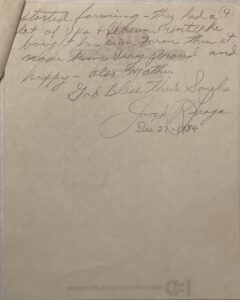 started farming - they had a (4)
lot of
bought his own Farm then it
made them Very Proud and
happy - also Mother
God Bless Their Souls
Dec 27 - 1984